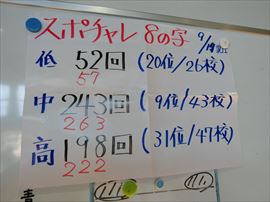 スポチャレ 8の字 9/19
低 52回 (20位/26校)
57
中 243回 (9位/43校)
263
高 198回 (31位/47校)
222